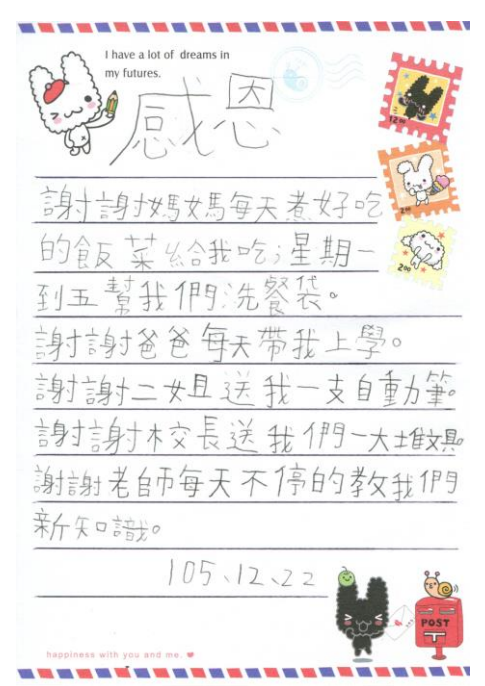 I have a lot of dreams in
my futures.
感恩
謝謝媽媽每天煮好吃
的飯菜給我吃；星期一
到五幫我們洗餐袋。
謝謝爸爸每天帶我上學。
謝謝二姐送我一支自動筆。
謝謝校長送我們一大堆文具。
謝謝老師每天不停的教我們
新知識。
105、12、22
POST
happiness with you and me.